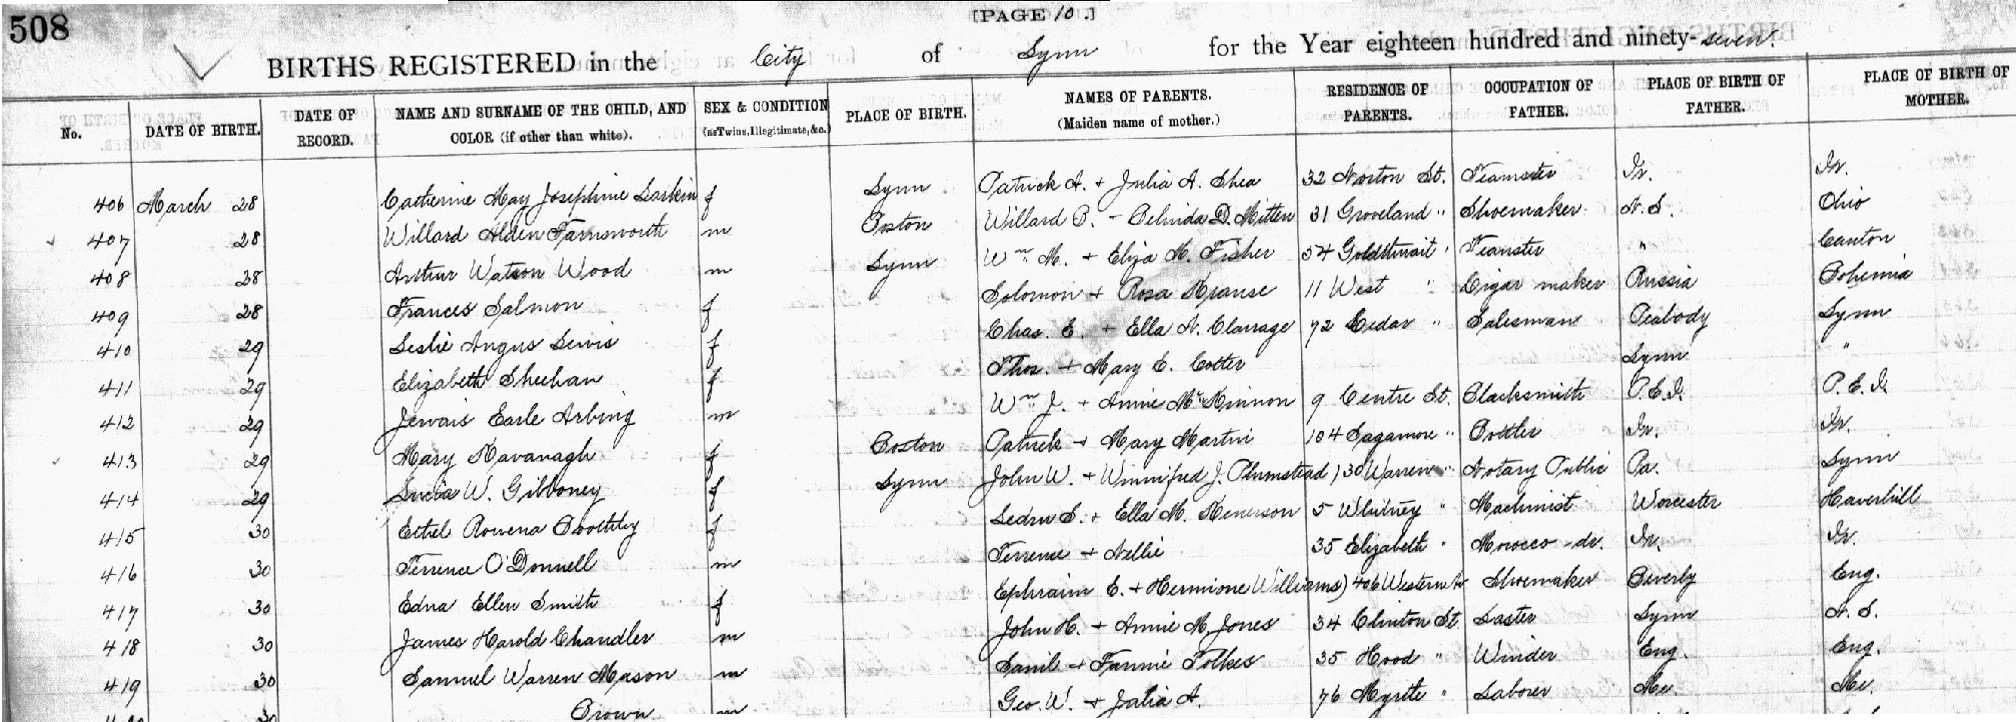 508
[PAGE 10.]
BIRTHS REGISTERED in the City of Lynn for the Year eighteen hundred and ninety-seven.
No. DATE OF BIRTH. DATE OF RECORD. NAME AND SURNAME OF THE CHILD, AND COLOR (if other than white). SEX & CONDITION (as Twins, Illegitimate, &c.) PLACE OF BIRTH. NAMES OF PARENTS. (Maiden name of mother.) RESIDENCE OF PARENTS. OCCUPATION OF FATHER. PLACE OF BIRTH OF FATHER. PLACE OF BIRTH OF MOTHER.
406 March 28 Catherine May Josephine Larkin f Lynn Patrick A. + Julia A. Shea 32 Norton St. Teamster Ir. Ir.
407 28 Willard Alden Farnsworth m Boston Willard B. - Belinda D. Mitten 31 Groveland " Shoemaker N.S. Ohio
408 28 Arthur Watson Wood m Lynn Wm. M. + Eliza M. Fisher 54 Goldthwait " Teamster " Canton
409 28 Frances Salmon f Solomon + Rosa Krause 11 West " Cigar maker Russia Bohemia
410 29 Leslie Angus Lewis f Chas. E. + Ella N. Clarrage 72 Cedar " Salesman Peabody Lynn
411 29 Elizabeth Sheehan f Thos. + Mary E. Cotter Lynn "
412 29 Jervais Earle Arbing m Wm J. + Annie McKinnon 9 Centre St. Blacksmith P.E.I. P.E.I.
413 29 Mary Kavanagh f Boston Patrick + Mary Martin 104 Sagamore " Bottler Ir. Ir.
414 29 Lucia W. Gibboney f Lynn John W. + Winnifred J. Plumstead) 30 Warren " Notary Public Pa. Lynn
415 30 Ethel Rowena Boothby f Ledru S. + Ella M. Kenerson 5 Whitney " Machinist Worcester Haverhill
416 30 Terrence O'Donnell m Terrence + Nellie 35 Elizabeth " Morocco-dr. Ir. Ir.
417 30 Edna Ellen Smith f Ephraim E. + Hermione Williams) 406 Western Av Shoemaker Beverly Eng.
418 30 James Harold Chandler m John H. - Annie M. Jones 34 Clinton St. Laster Lynn N.S.
419 30 Samuel Warren Mason m Saml. + Fannie Folkes 35 Hood " Winder Eng. Eng.
30 Brown m Geo. W. + Julia A. 76 Myrtle " Laborer Me Me.